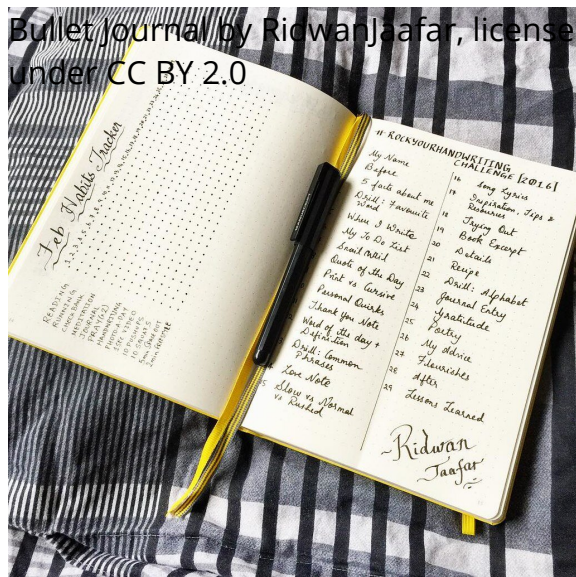 Bullet Journal by RidwanJaafar, license
under CC BY 2.0
Feb Habits Tracker
READING
RUNNING
CHECK BANK
MEDITATION
JOURNAL
PRAY (x2)
HANDWRITING
PHOTO-A-DAY
1 SEC VIDEO
10 PUSHUPS
10 SQUATS
#ROCKYOURHANDWRITING
CHALLENGE [2016]
My Name
Before
5 facts about me
Drill: Favourite
Word
When I Write
My To Do List
Snail Mail
Quote of the Day
Print vs Cursive
Personal Quirks
Thank You Note
Word of the day +
Definition
Drill: Common
Phrases
Love Note
Slow vs Normal
vs Rushed
16 Song Lyrics
17 Inspiration, Tips &
18 Trying Out
19 Book Excerpt
20 Details
21 Recipe
22 Drill: Alphabet
23 Journal Entry
24 Gratitude
25 Poetry
26 My Advice
27 Flourishes
28 After
29 Lessons Learned
Ridwan
Jaafar